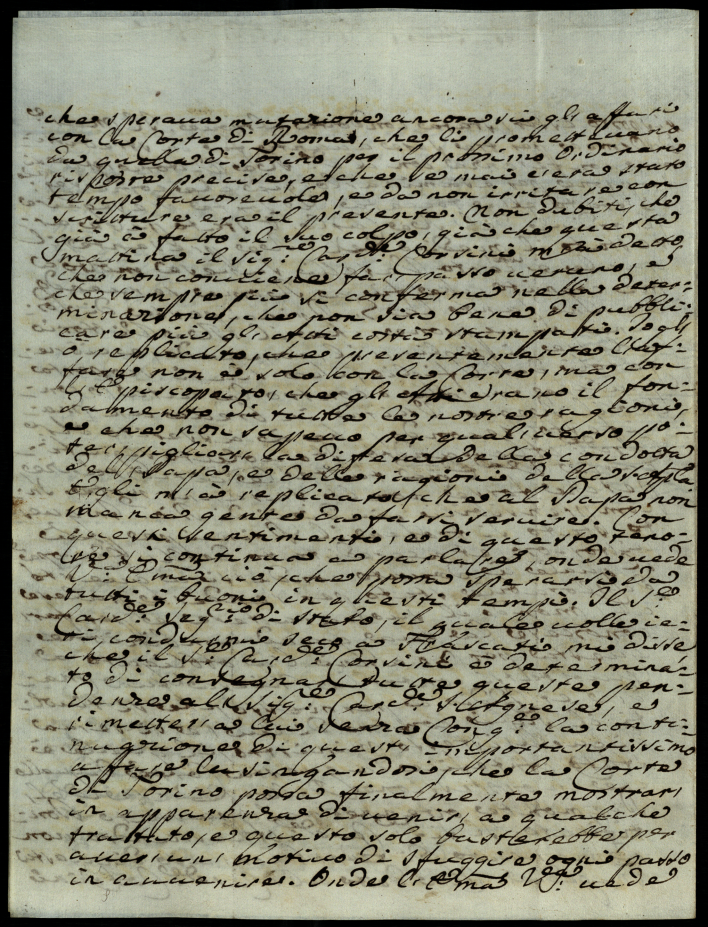 che speraua mutazione ancora sù gli affari
con la Corte di Roma, che li promettevano
da quella di Torino per il prossimo Ordinario
risposte precise, e che se mai c'era stato
tempo fauoreuole, e da non irritare con
scritture era il presente. Non dubiti, che
già à fatto il suo colpo, già che questa
mattina il Sig.e Card.le Corsini m'à detto,
che non conuiene far passo ueruno, e
che sempre più si conferma nella deter-
minazione, che non sia bene di pubbli-
care più gli atti costì stampati. Io gli
ò replicato, che presentemente l'Af-
fare non è solo con la Corte, ma con
l'Episcopato, che gli atti erano il fon-
damento di tutte le nostre ragioni,
e che non sapeuo per qual uerso po-
ter pigliare la difesa della condotta
del Papa, e delle ragioni della
Egli m'à replicato, che al Papa non
manca gente da farsi seruire. Con
questi sentimenti, e di questo teno-
re si continua a parlare, onde uede
V.a Em.za ciò, che possa sperarsi da
tutti i buoni in questi tempi. Il S.e
Card.le Seg.rio di Stato, il quale uolle ie-
ri condurmi seco a Frascati mi disse
che il S.e Card.le Corsini è determina-
to di consegnare tutte queste pen-
denze al Sig.e Card.le e
rimettere a lui senza Cong.e la conti-
nuazione di questo importantissimo
affare lusingandosi, che la Corte
di Torino possa finalmente mostrare
in apparenza di uenire a qualche
trattato, e questo solo basterebbe per
auere un motiuo di sfuggire ogni passo
in auuenire. Onde l'Em.za V.a uede